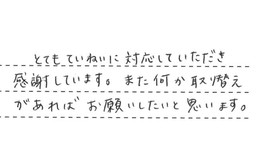 とてもていねいに対応していただき
感謝しています。また何か取り替え
があればお願いしたいと思います。